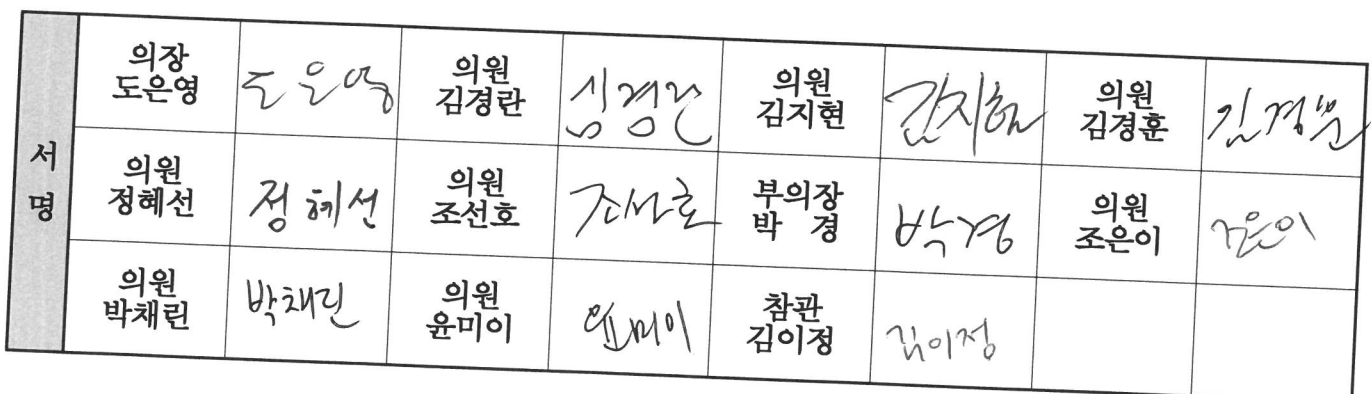 서명
의장
도은영
도은영
의원
김경란
김경란
의원
김지현
김지현
의원
김경훈
김경훈
의원
정혜선
정혜선
의원
조선호
조선호
부의장
박 경
박경
의원
조은이
조은이
의원
박채린
박채린
의원
윤미이
윤미이
참관
김이정
김이정